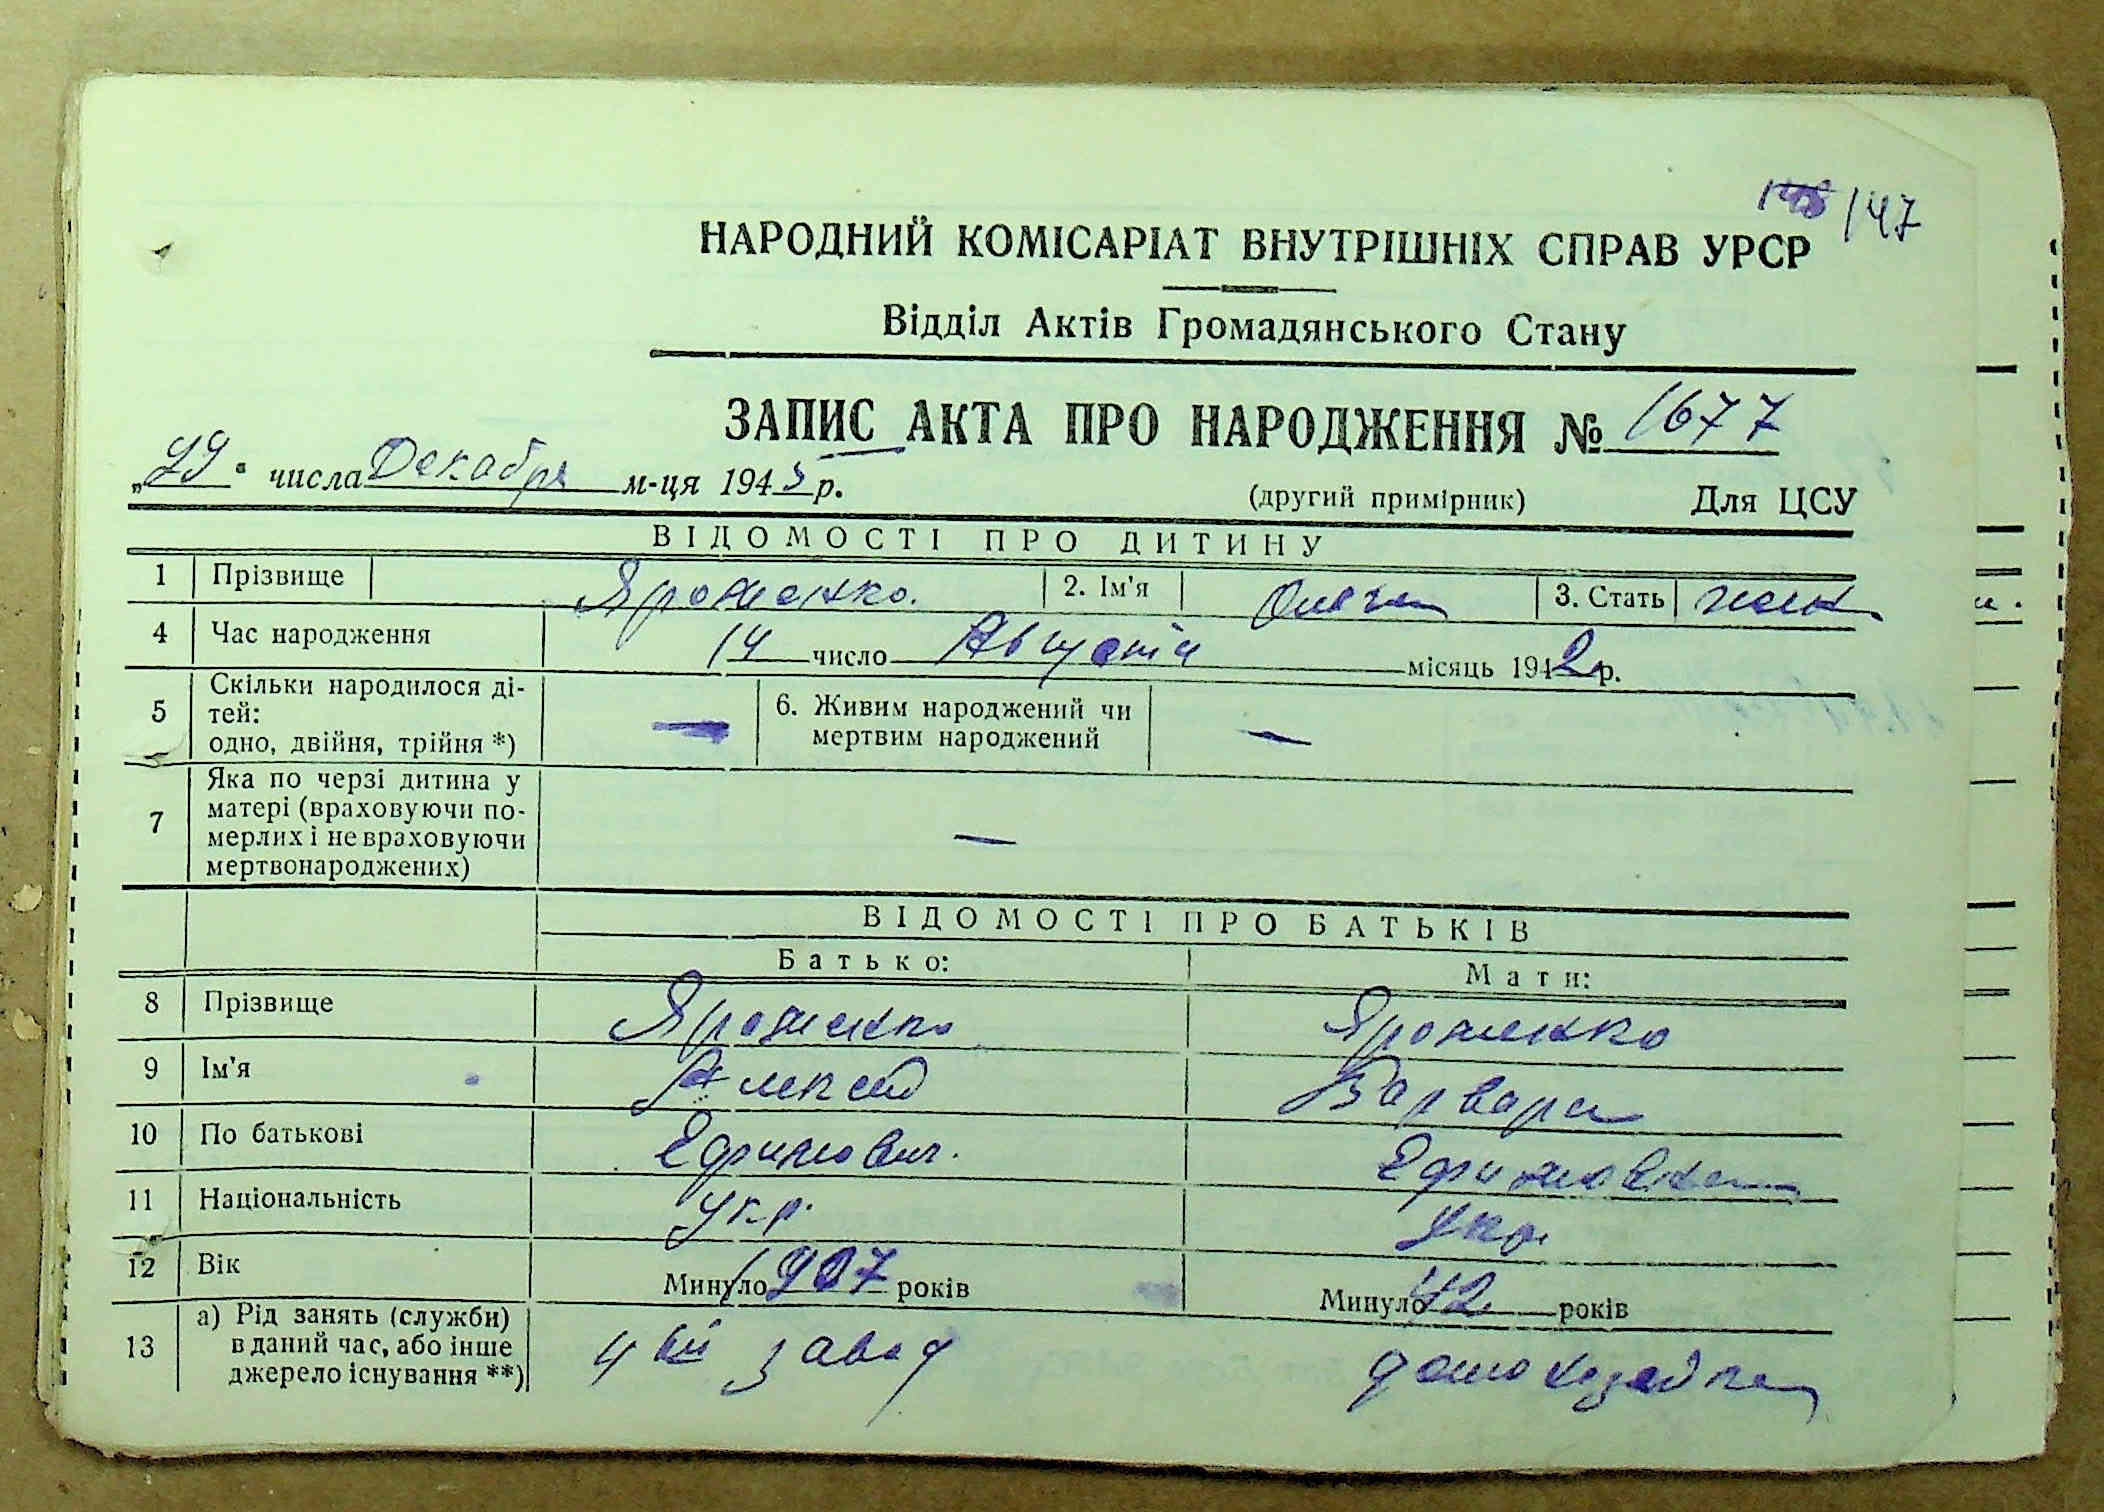 148 147
НАРОДНИЙ КОМІСАРІАТ ВНУТРІШНІХ СПРАВ УРСР
Відділ Актів Громадянського Стану
ЗАПИС АКТА ПРО НАРОДЖЕННЯ № 1677
„29" числа Декабря м-ця 1945 р.
(другий примірник) Для ЦСУ
ВІДОМОСТІ ПРО ДИТИНУ
1 Прізвище Яроменко. 2. Ім'я Ольга 3. Стать жен
4 Час народження 14 число Августа місяць 1942 р.
5 Скільки народилося ді-
тей:
одно, двійня, трійня *) —
6. Живим народжений чи
мертвим народжений —
7 Яка по черзі дитина у
матері (враховуючи по-
мерлих і не враховуючи
мертвонароджених) —
ВІДОМОСТІ ПРО БАТЬКІВ
Батько: Мати:
8 Прізвище Яроменко Яроменко
9 Ім'я Алексей Варвара
10 По батькові Ефимович. Ефимовна
11 Національність укр. укр.
12 Вік Минуло 1907 років Минуло 42 років
13 а) Рід занять (служби)
в даний час, або інше
джерело існування **)
4ый завод домохозяйка